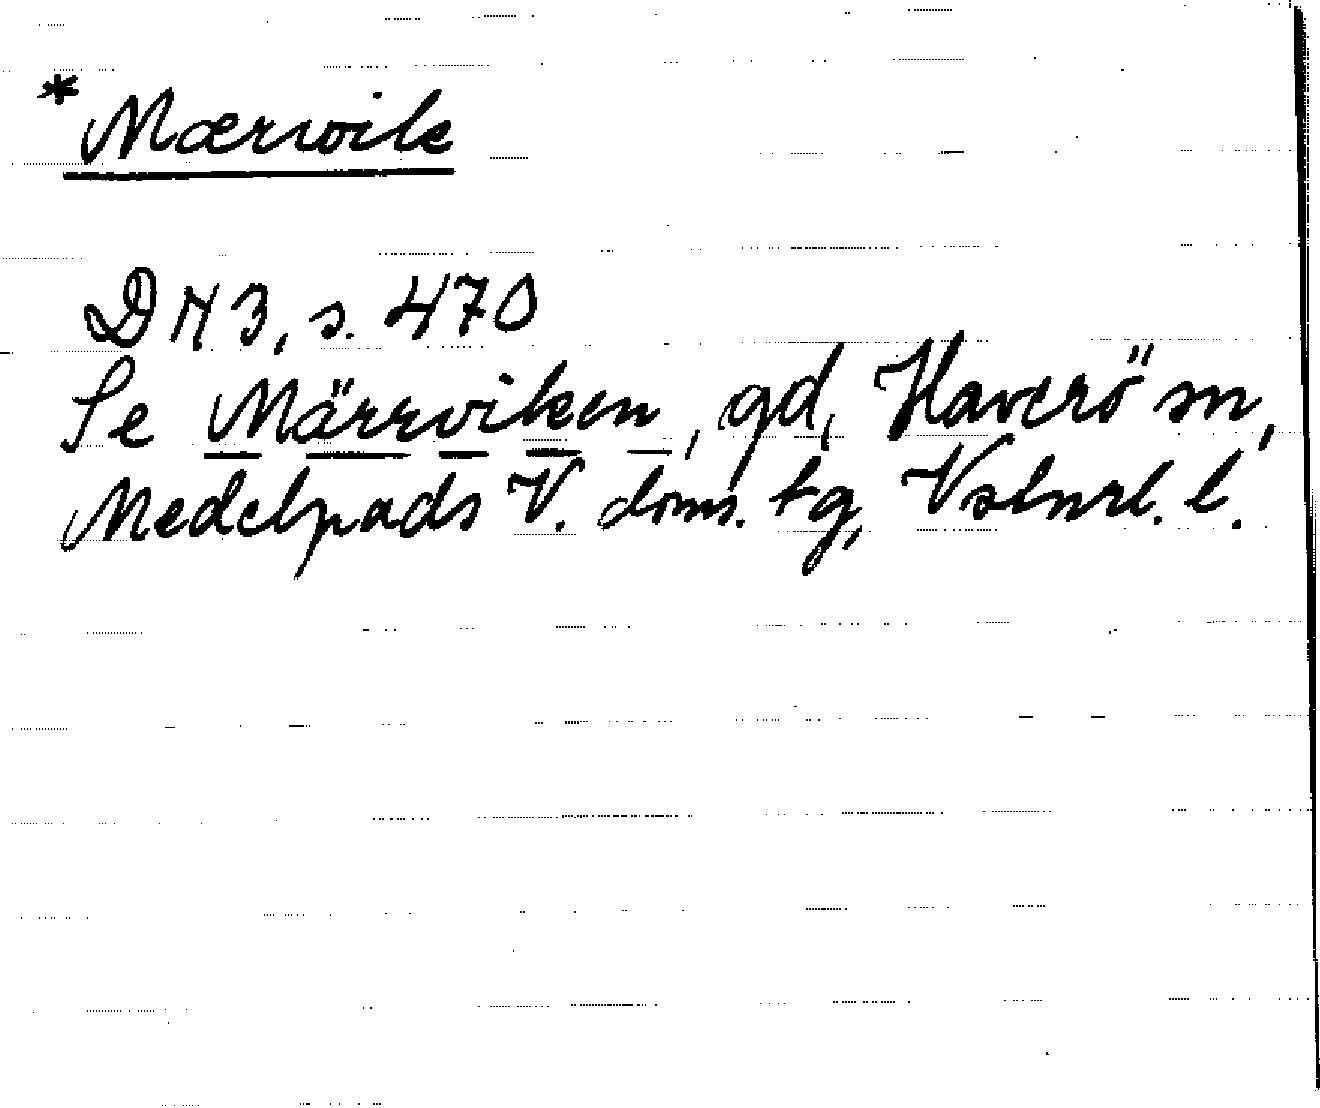 *Mærwik
DN 3, s. 470
Se Märrviken, gd, Haverö sn,
Medelpads V. doms. tg, Vstnrl. l.